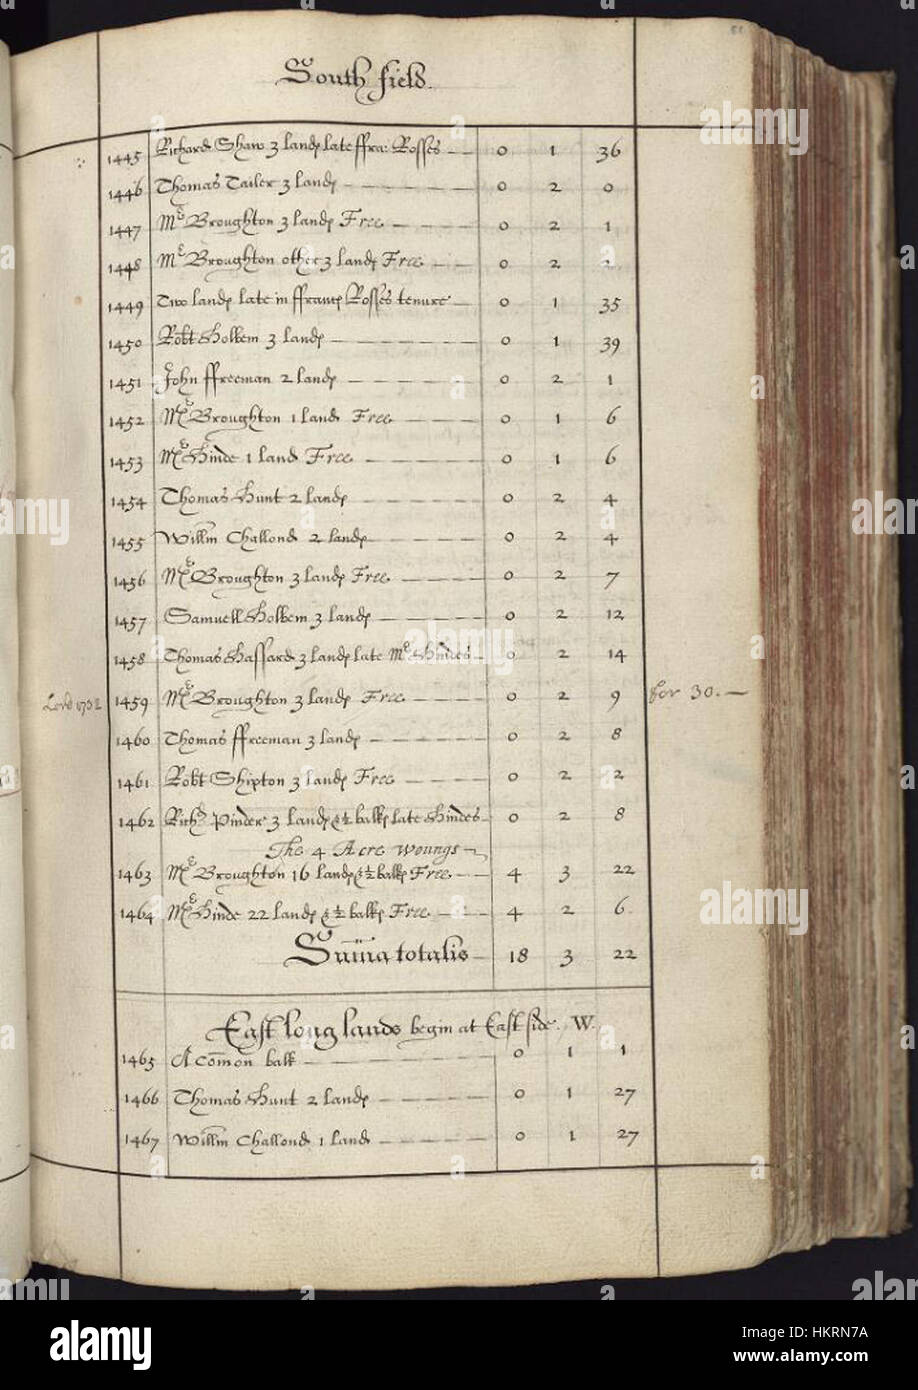 South field.
1445 Richard Shaw 3 landꝭ late ffra: Rosses 0 1 36
1446 Thomas Tailer 3 landꝭ 0 2 0
1447 Mr Broughton 3 landꝭ Free 0 2 1
1448 Mr Broughton other 3 landꝭ Free 0 2 2
1449 Two landꝭ late in ffrancꝭ Rosses tenure 0 1 35
1450 Robt Holbem 3 landꝭ 0 1 39
1451 John ffreeman 2 landꝭ 0 2 1
1452 Mr Broughton 1 land Free 0 1 6
1453 Mr Hinde 1 land Free 0 1 6
1454 Thomas Hunt 2 landꝭ 0 2 4
1455 Willm Challond 2 landꝭ 0 2 4
1456 Mr Broughton 3 landꝭ Free 0 2 7
1457 Samuell Holbem 3 landꝭ 0 2 12
1458 Thomas Hassard 3 landꝭ late Mr Hindes 0 2 14
Lord 1732 1459 Mr Broughton 3 landꝭ Free 0 2 9 for 30.—
1460 Thomas ffreeman 3 landꝭ 0 2 8
1461 Robt Shipton 3 landꝭ Free 0 2 2
1462 Rich: Pinder 3 landꝭ & ½ balkꝭ late Hindes 0 2 8
The 4 Acre woungs
1463 Mr Broughton 16 landꝭ & ½ balkꝭ Free 4 3 22
1464 Mr Hinde 22 landꝭ & ½ balkꝭ Free 4 2 6
Summa totalis 18 3 22
East long lands begin at East side. W.
1465 A Com̄on balk 0 1 1
1466 Thomas Hunt 2 landꝭ 0 1 27
1467 Willm Challond 1 land 0 1 27
alamy
Image ID: HKRN7A
www.alamy.com